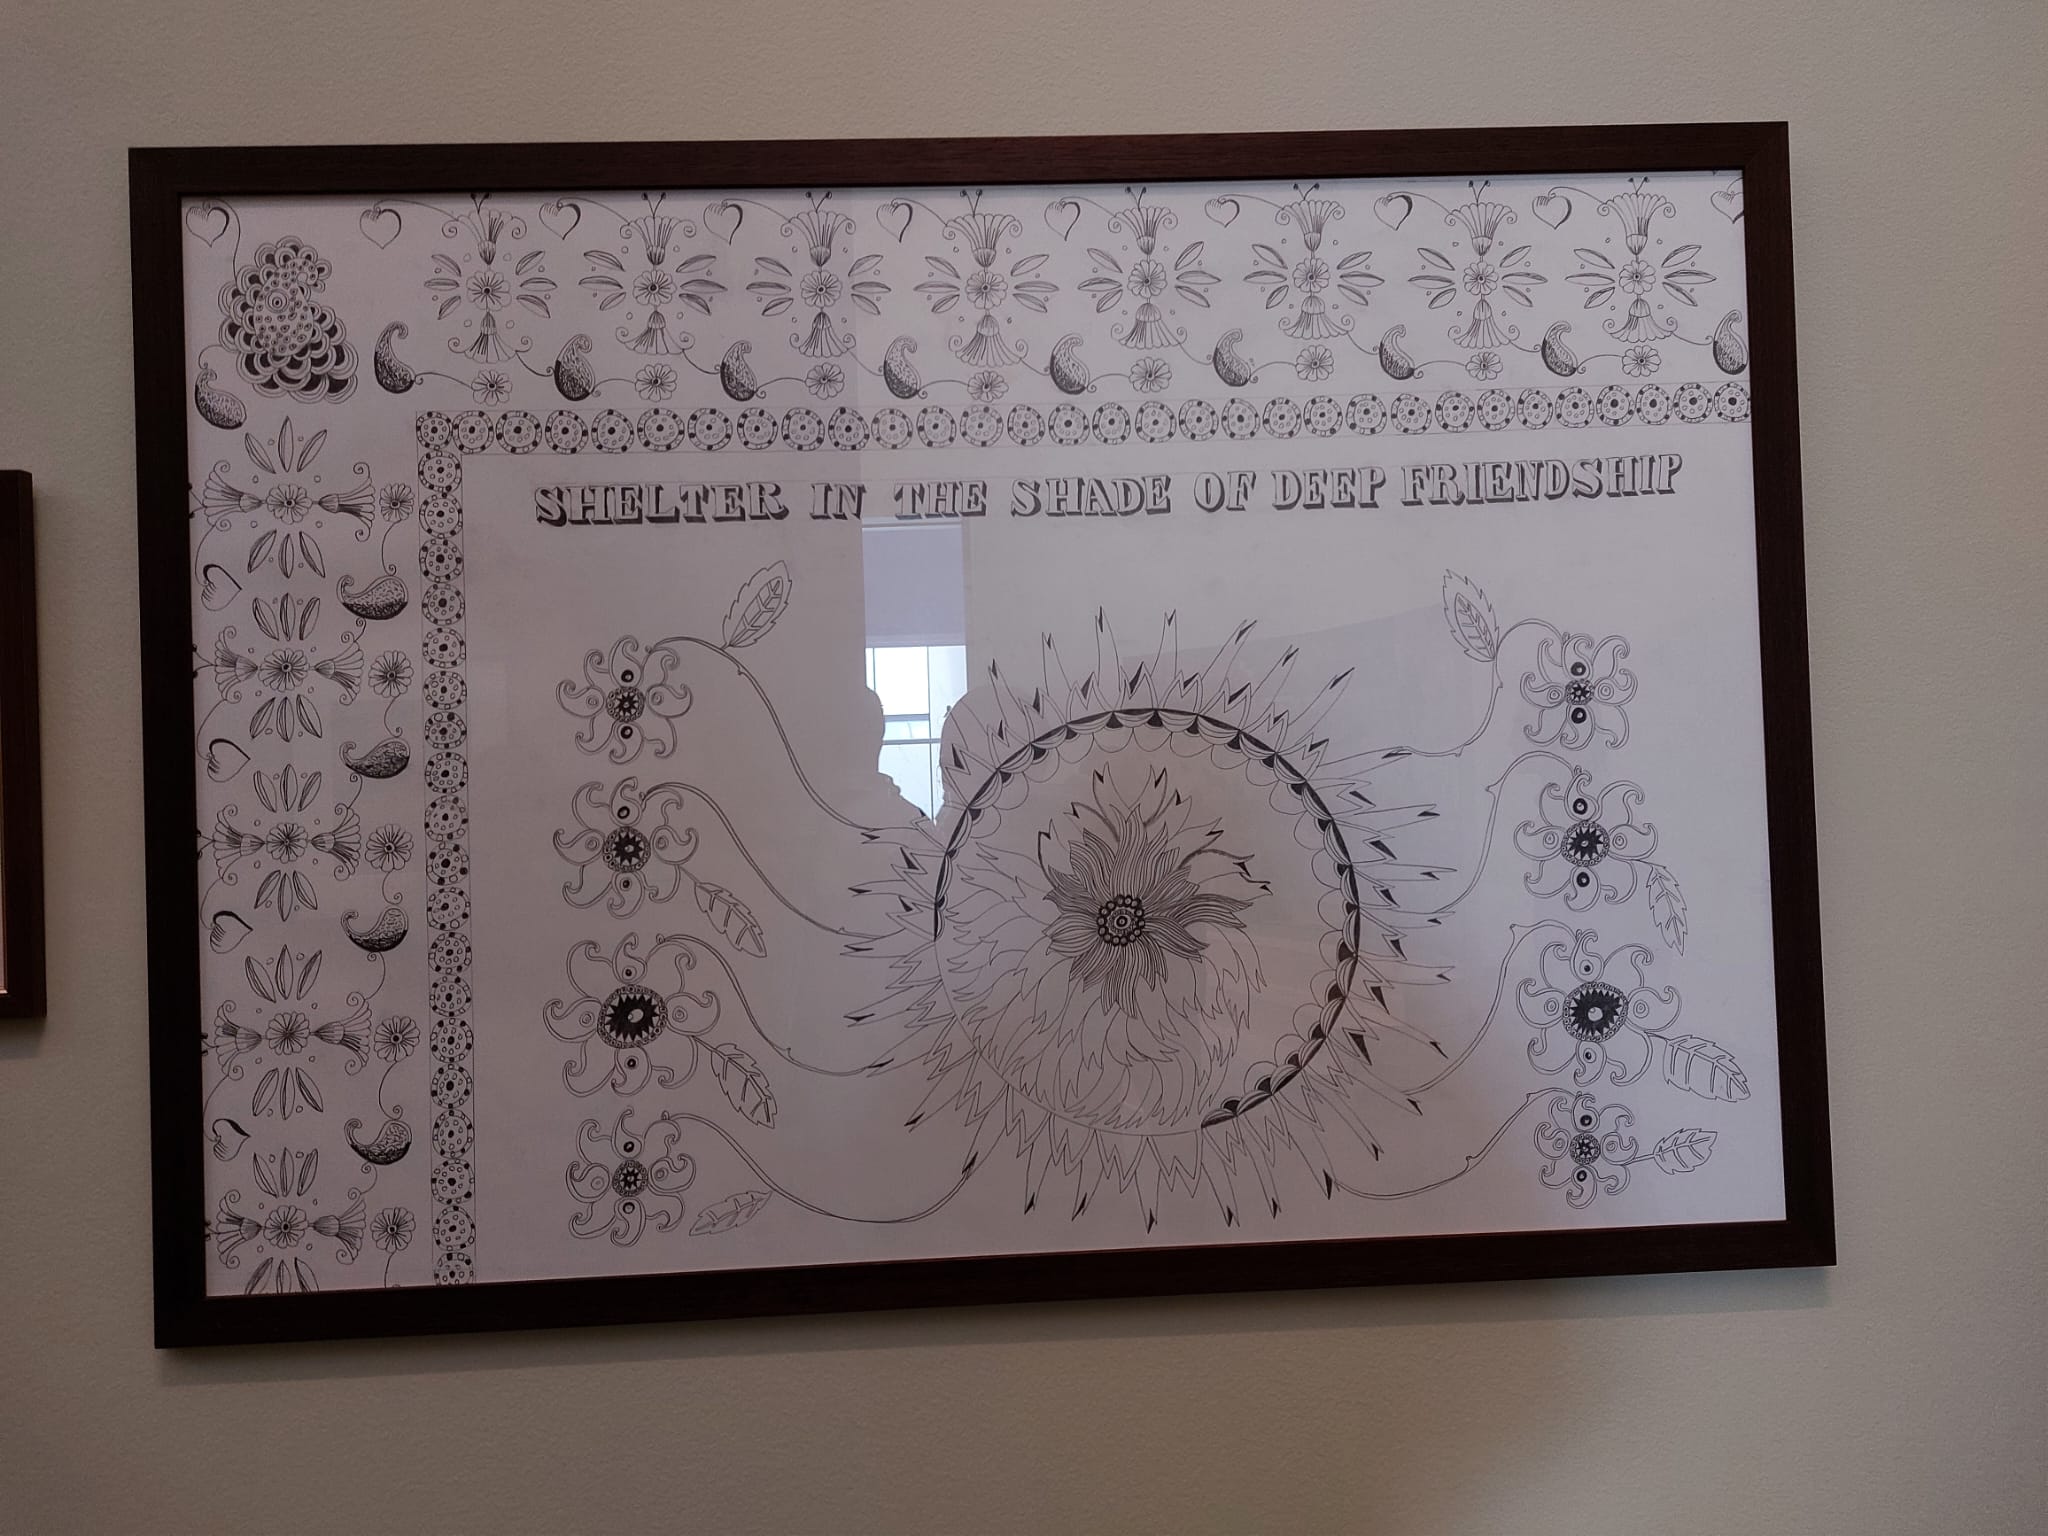 SHELTER IN THE SHADE OF DEEP FRIENDSHIP